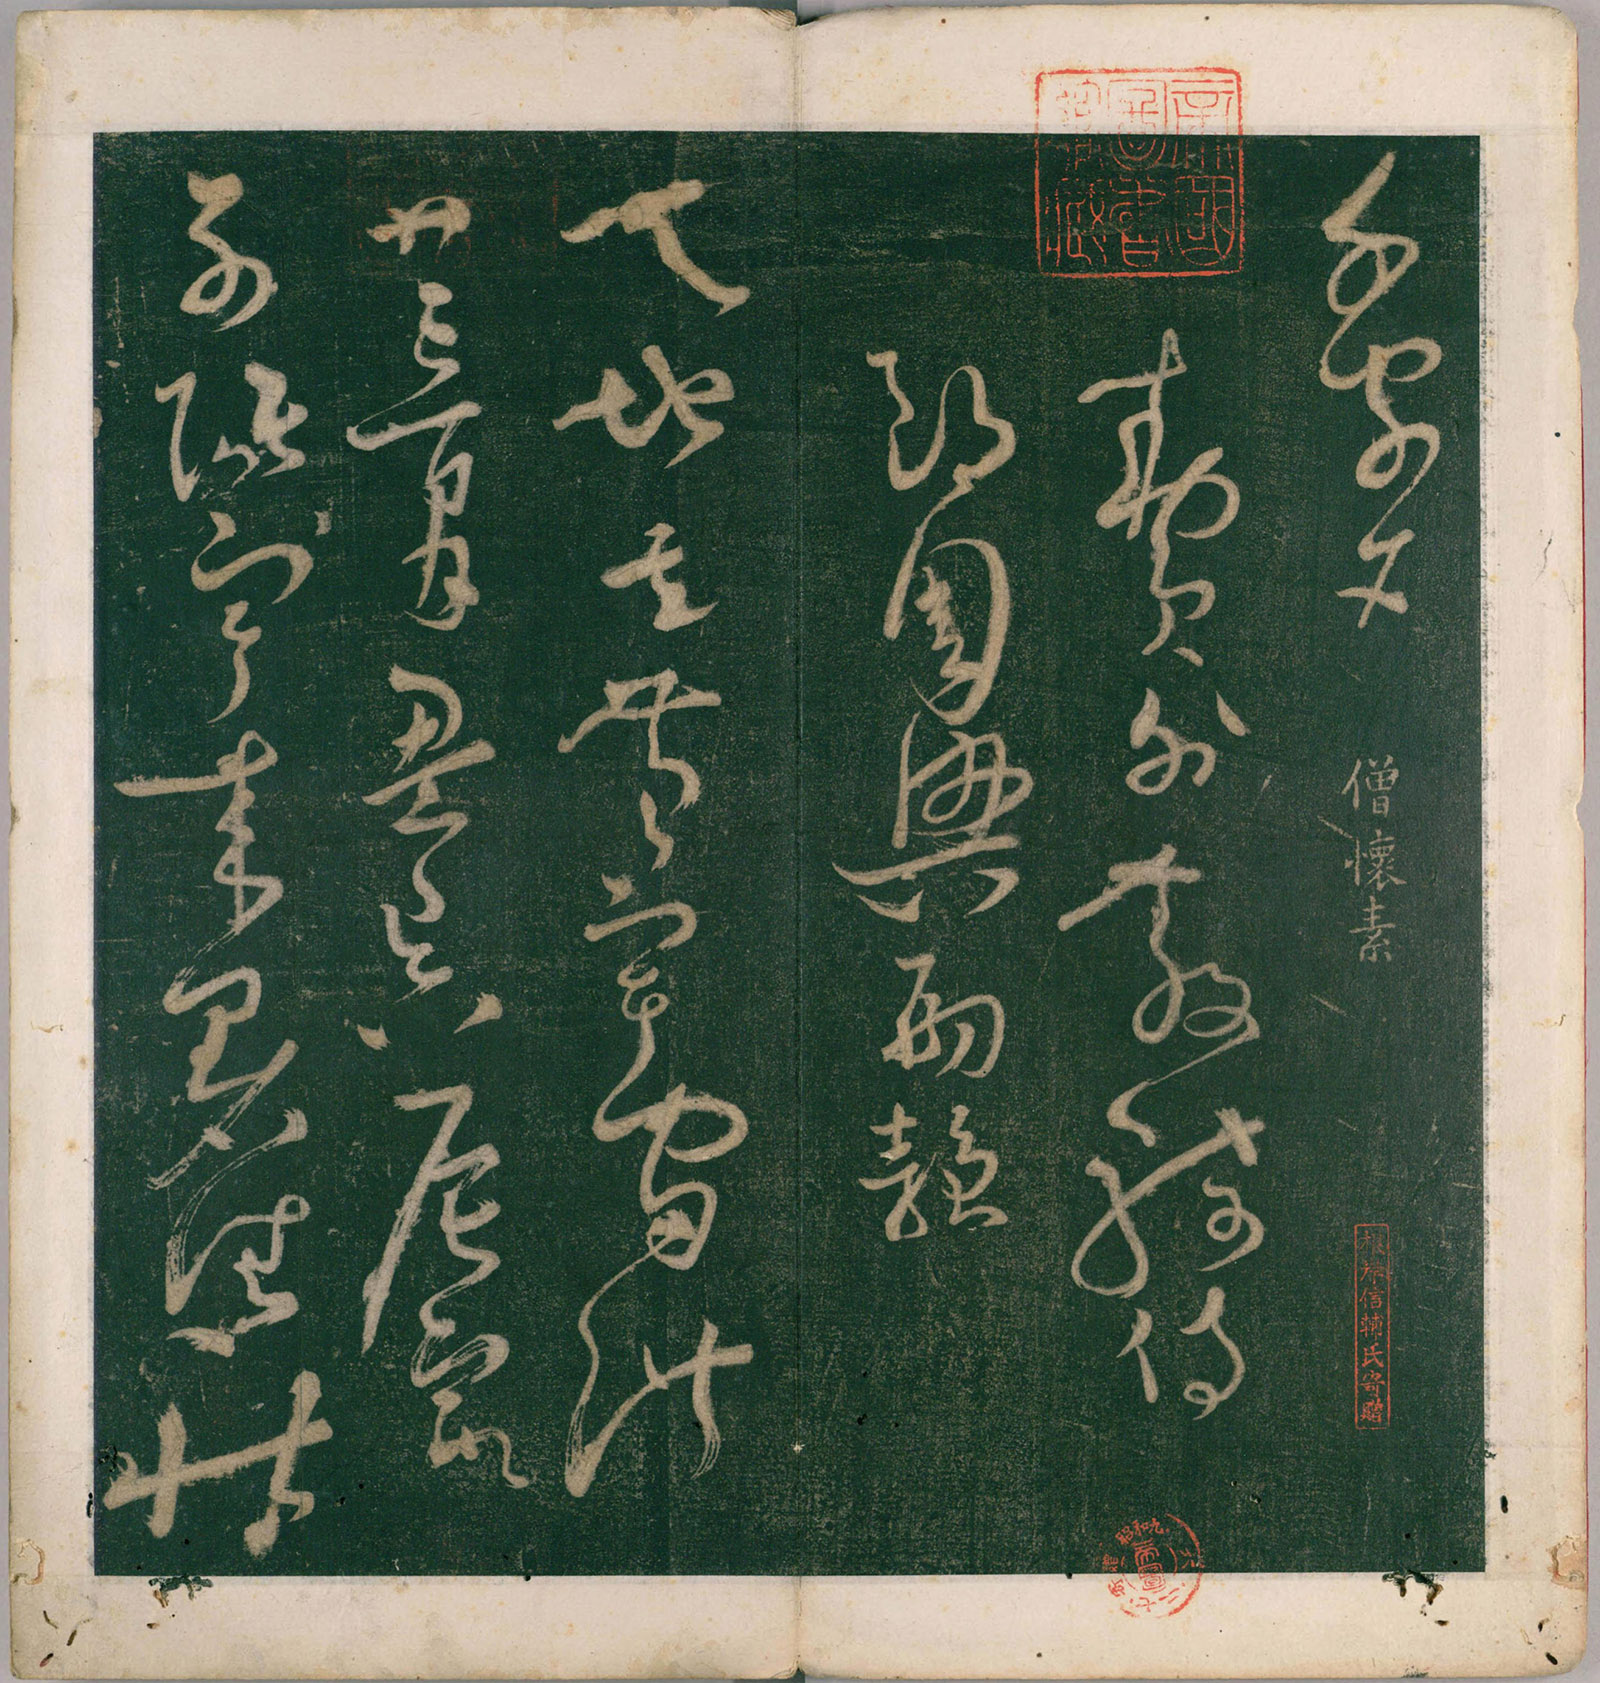 千字文
僧懷素
勅員外散騎侍
郎周興嗣韻
天地玄黃宇宙洪
荒日月盈昃辰宿
列張寒來暑往秋
帝國圖書館藏
根岸信輔氏寄贈
昭和九